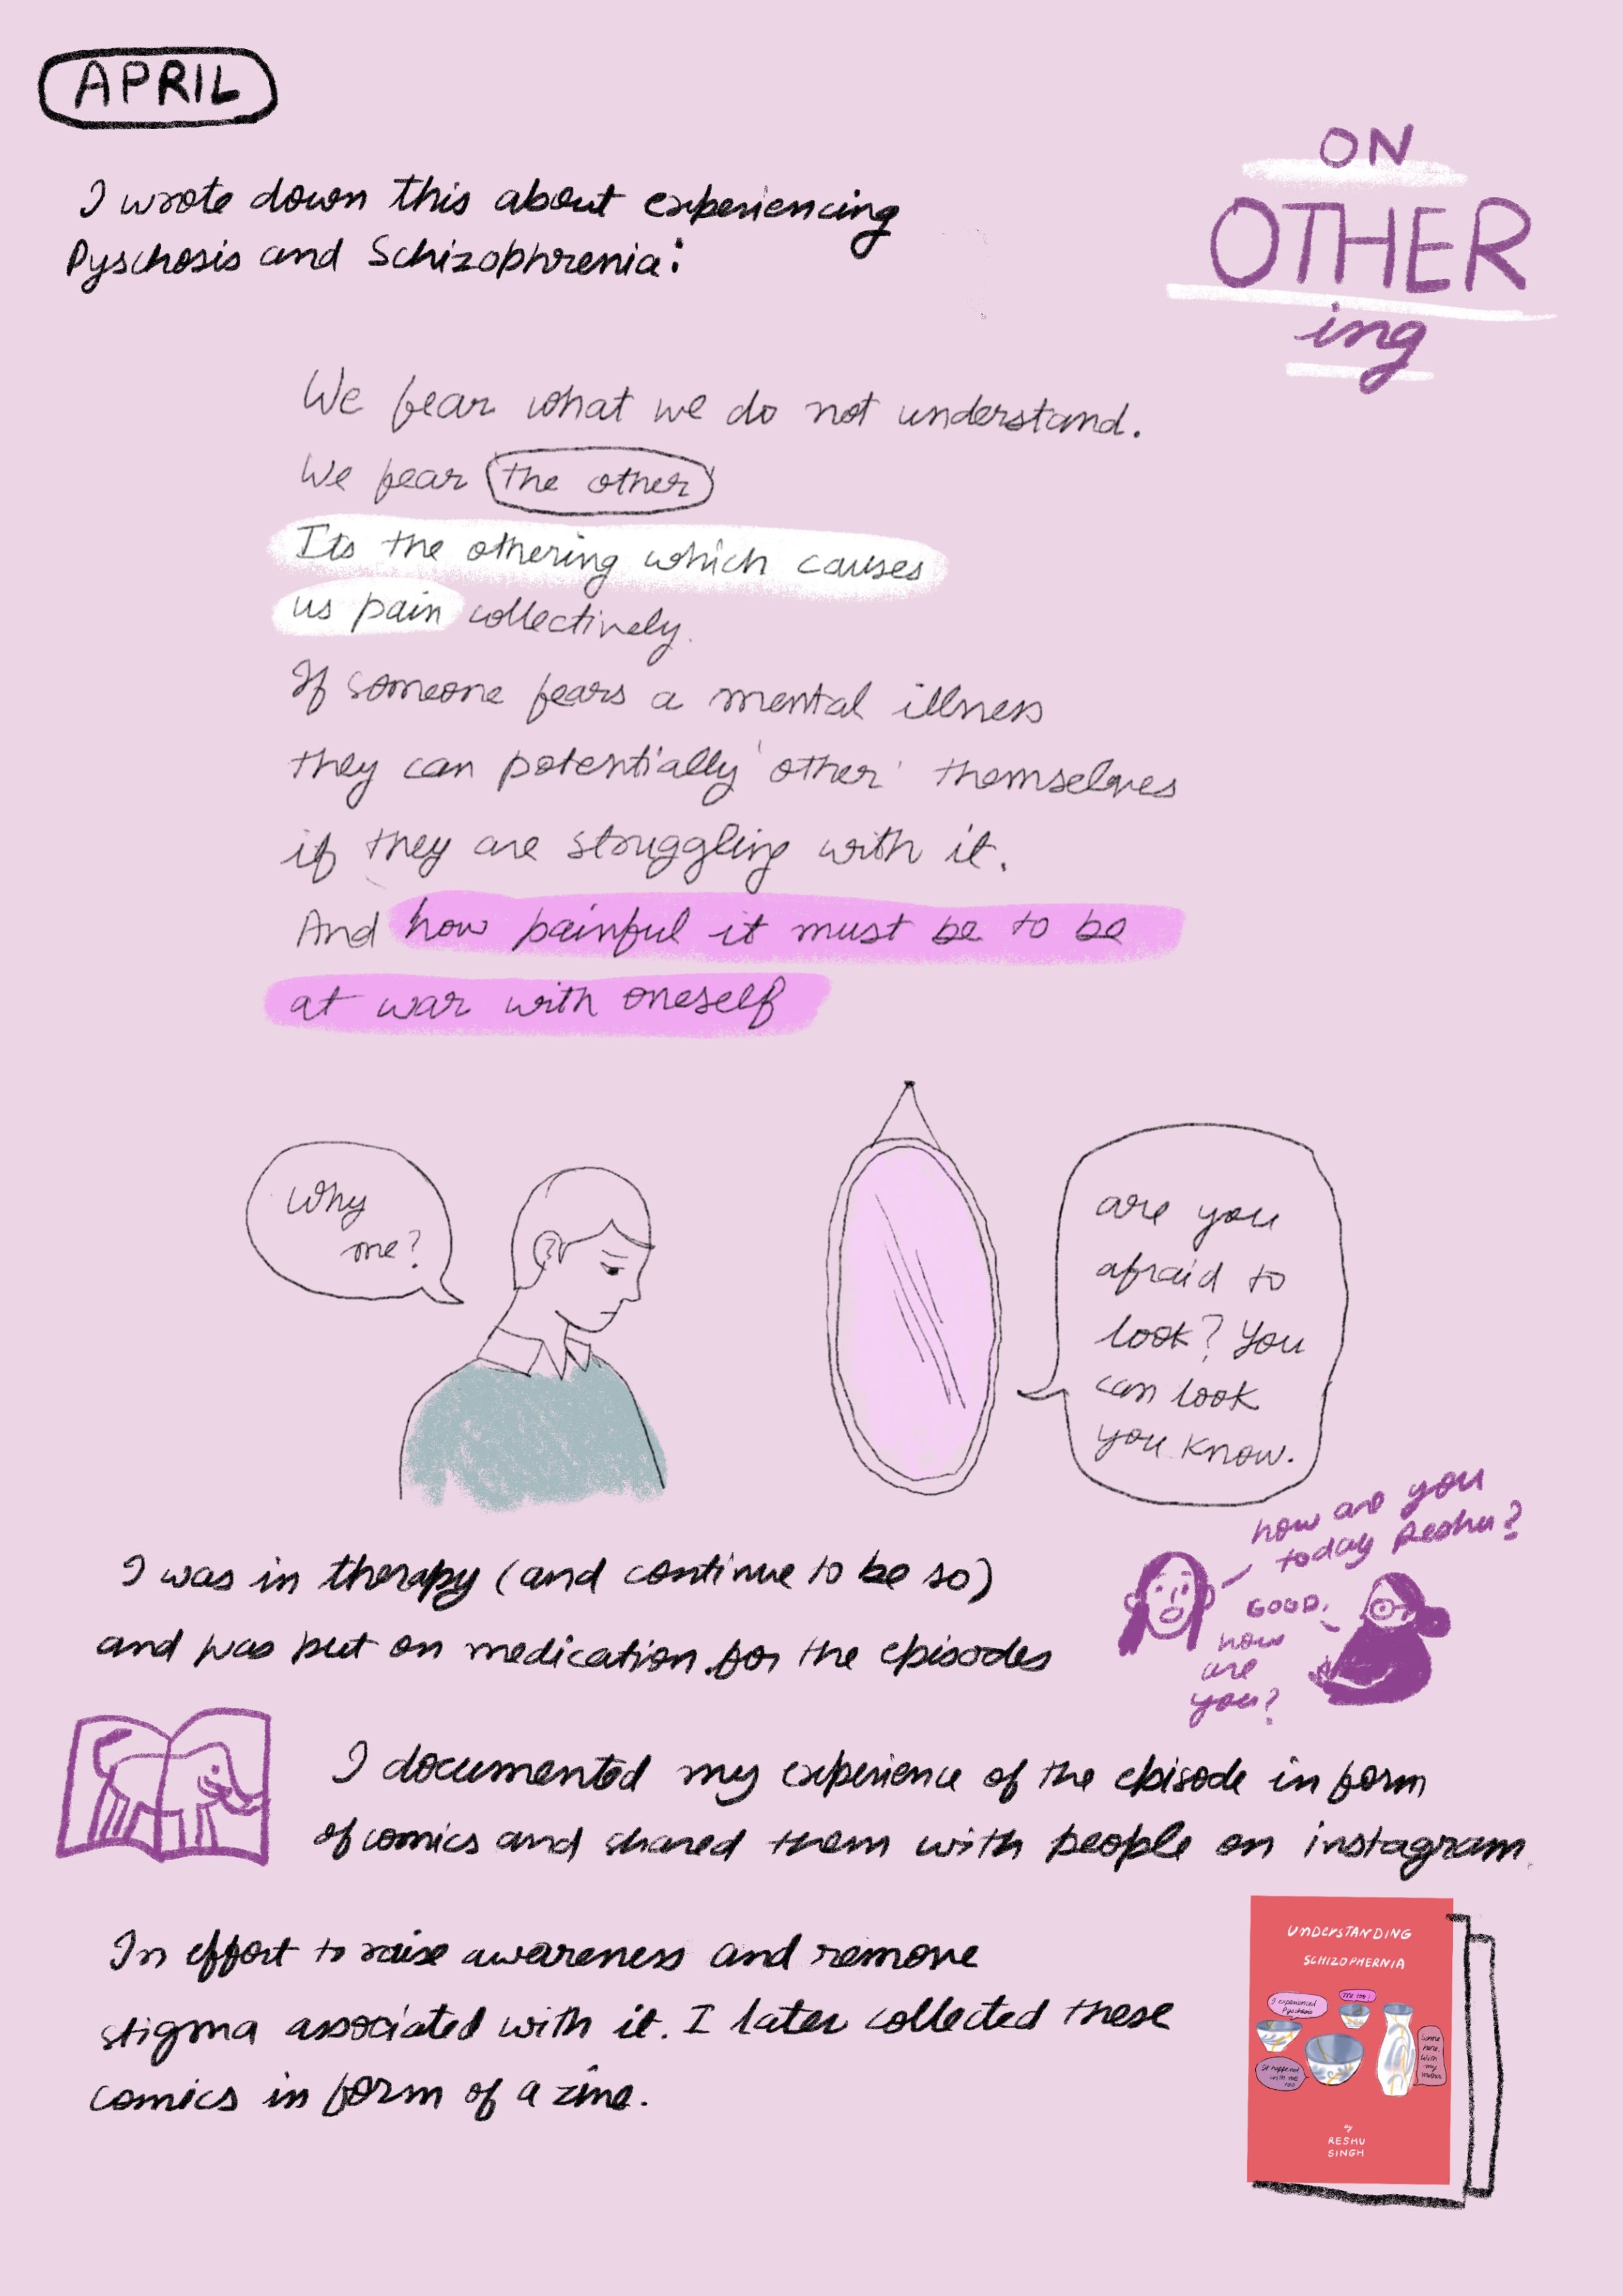 APRIL
ON
OTHER
ing
I wrote down this about experiencing
Pyschosis and Schizophrenia:
We fear what we do not understand.
We fear the other
Its the othering which causes
us pain collectively.
If someone fears a mental illness
they can potentially 'other' themselves
if they are struggling with it.
And how painful it must be to be
at war with oneself
Why
me?
are you
afraid to
look? You
can look
you know.
how are you
today Reshu?
GOOD,
how
are
you?
I was in therapy (and continue to be so)
and was put on medication for the episodes
I documented my experience of the episode in form
of comics and shared them with people on instagram.
In effort to raise awareness and remove
stigma associated with it. I later collected these
comics in form of a zine.
UNDERSTANDING
SCHIZOPHERNIA
I experienced
Pyschosis
me too!
It happened
with me
too
Same
here.
With
my
by
RESHU
SINGH